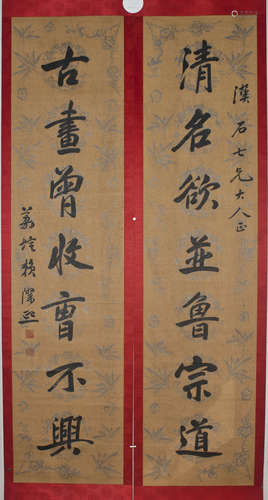 漢石七兄大人正
清名欲並魯宗道
古畫曾收曹不興